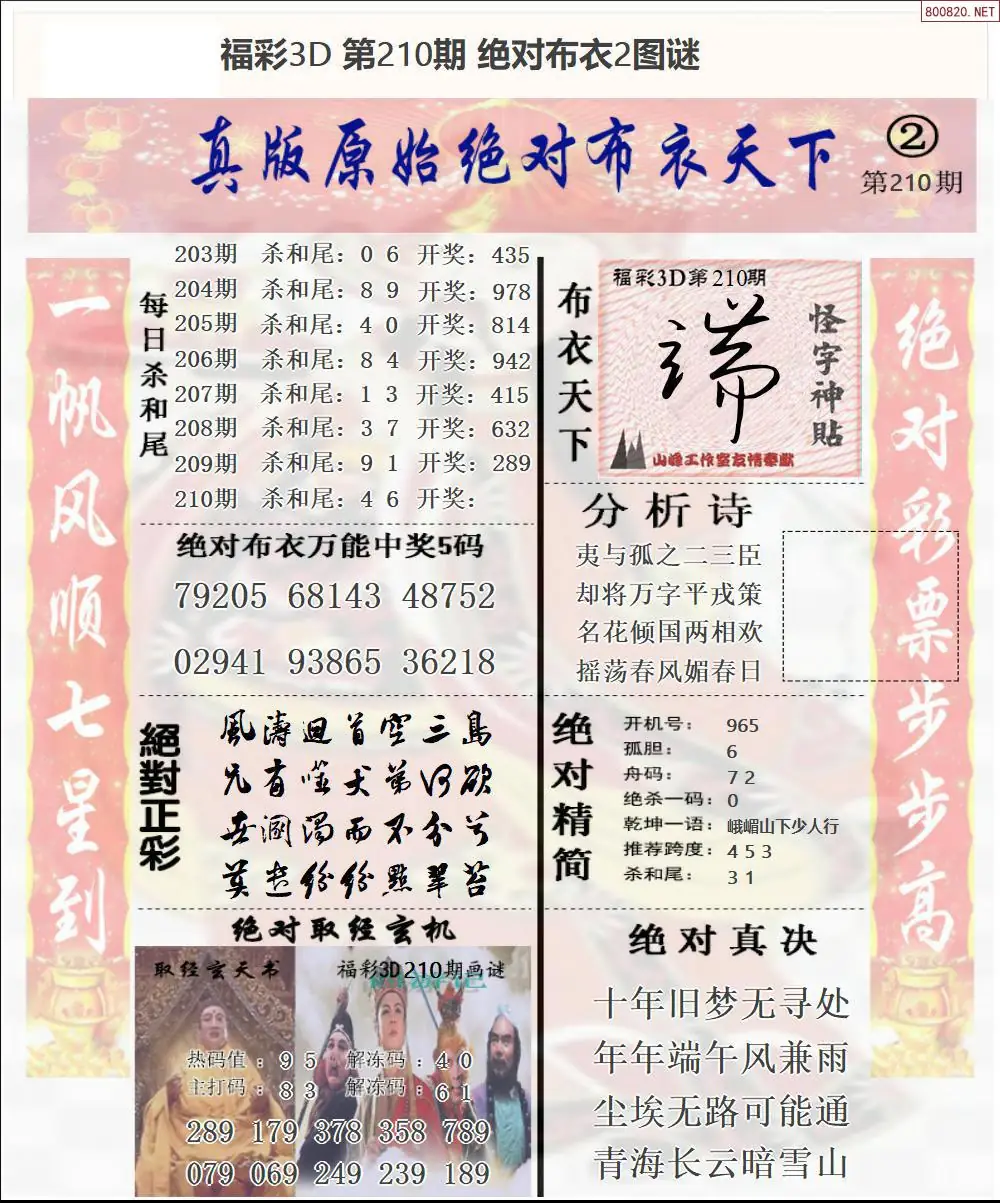 800820.NET
福彩3D 第210期 绝对布衣2图谜
真版原始绝对布衣天下
②
第210期
一帆风顺七星到
每日杀和尾
203期 杀和尾：0 6 开奖：435
204期 杀和尾：8 9 开奖：978
205期 杀和尾：4 0 开奖：814
206期 杀和尾：8 4 开奖：942
207期 杀和尾：1 3 开奖：415
208期 杀和尾：3 7 开奖：632
209期 杀和尾：9 1 开奖：289
210期 杀和尾：4 6 开奖：
绝对布衣万能中奖5码
79205 68143 48752
02941 93865 36218
絕對正彩
風濤迴首空三島
兄有噬犬弟何欲
世溷濁而不分兮
莫趁纷纷點翠苔
绝对取经玄机
取经玄天书
福彩3D210期画谜
热码值：9 5 解冻码：4 0
主打码：8 3 解冻码：6 1
289 179 378 358 789
079 069 249 239 189
布衣天下
福彩3D第210期
端
怪字神貼
山峰工作室友情奉献
分析诗
夷与孤之二三臣
却将万字平戎策
名花倾国两相欢
摇荡春风媚春日
绝对精简
开机号：965
孤胆：6
舟码：7 2
绝杀一码：0
乾坤一语：峨嵋山下少人行
推荐跨度：4 5 3
杀和尾：3 1
绝对真决
十年旧梦无寻处
年年端午风兼雨
尘埃无路可能通
青海长云暗雪山
绝对彩票步步高